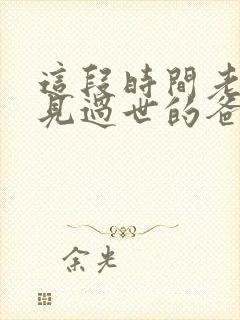 這段時間老
見過世的爸
余光